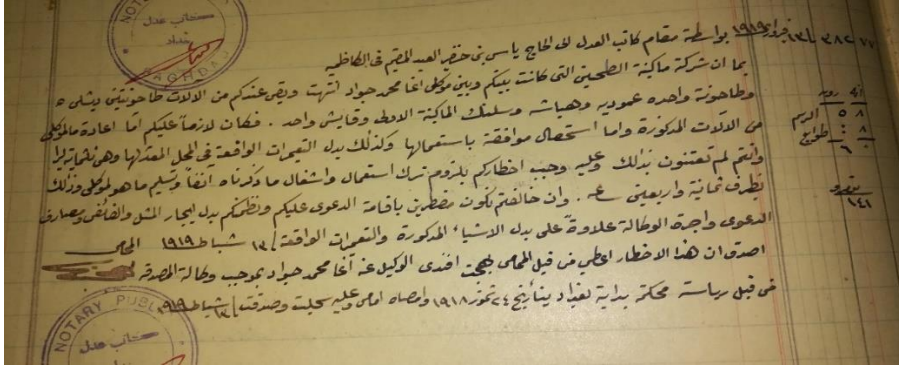 NOTARY PUBLIC
كاتب عدل
بغداد
BAGHDAD
٣٨٢٧٧ ١٣ فبروار ١٩١٩ بواسطة مقام كاتب العدل الى الحاج ياسين بن خضر العبد المقيم في الكاظمية
بما ان شركة ماكينة الطحين التي كانت بينكم وبين موكلي اغا محمد جواد انتهت وبقى عندكم من الالات طاحونتين
وطاحونة واحدة عمودية وسلنك الماكينة الاولى وقايش واحد . فكان لازماً عليكم اما اعادة مالموكلي
من الالات المذكورة واما استحصال موافقة باستعمالها وكذلك بدل التعميرات الواقعة في المحل
وانتم لم تعتنون بذلك وعليه وجب اخطاركم بلزوم ترك استعمال واشغال ما ذكرناه انفاً وتسليم ما هو لموكلي وذلك
بظرف ثمانية واربعين ساعة . وان خالفتم نكون مضطرين باقامة الدعوى عليكم ونظمنكم بدل ايجار المثل والفائض ومصارف
الدعوى واجرة الوكالة علاوةً على بدل الاشياء المذكورة والتعميرات الواقعة ١٣ شباط ١٩١٩ المحامي
اصدق ان هذا الاخطار اعطي من قبل المحامي بهجت افندي الوكيل عن آغا محمد جواد بموجب وكالة المصدقة
من قبل رياسة محكمة بداية بغداد بتأريخ ٢٤ تموز ١٩١٨ وامضاه امامي وعليه سجلت وصدقت ١٣ شباط ١٩١٩
انه روبيه
٨ ٥ الرسم
٨ : طوابع
٦
نومرو
١٤١
NOTARY PUBLIC
كاتب عدل